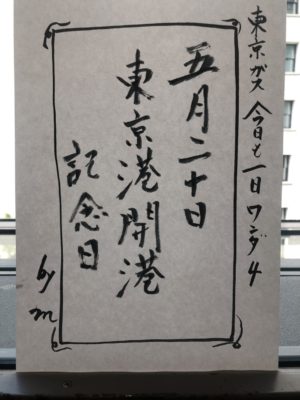 東京ガス 今日も一日ワンダ4
五月二十日
東京港開港
記念日
by m